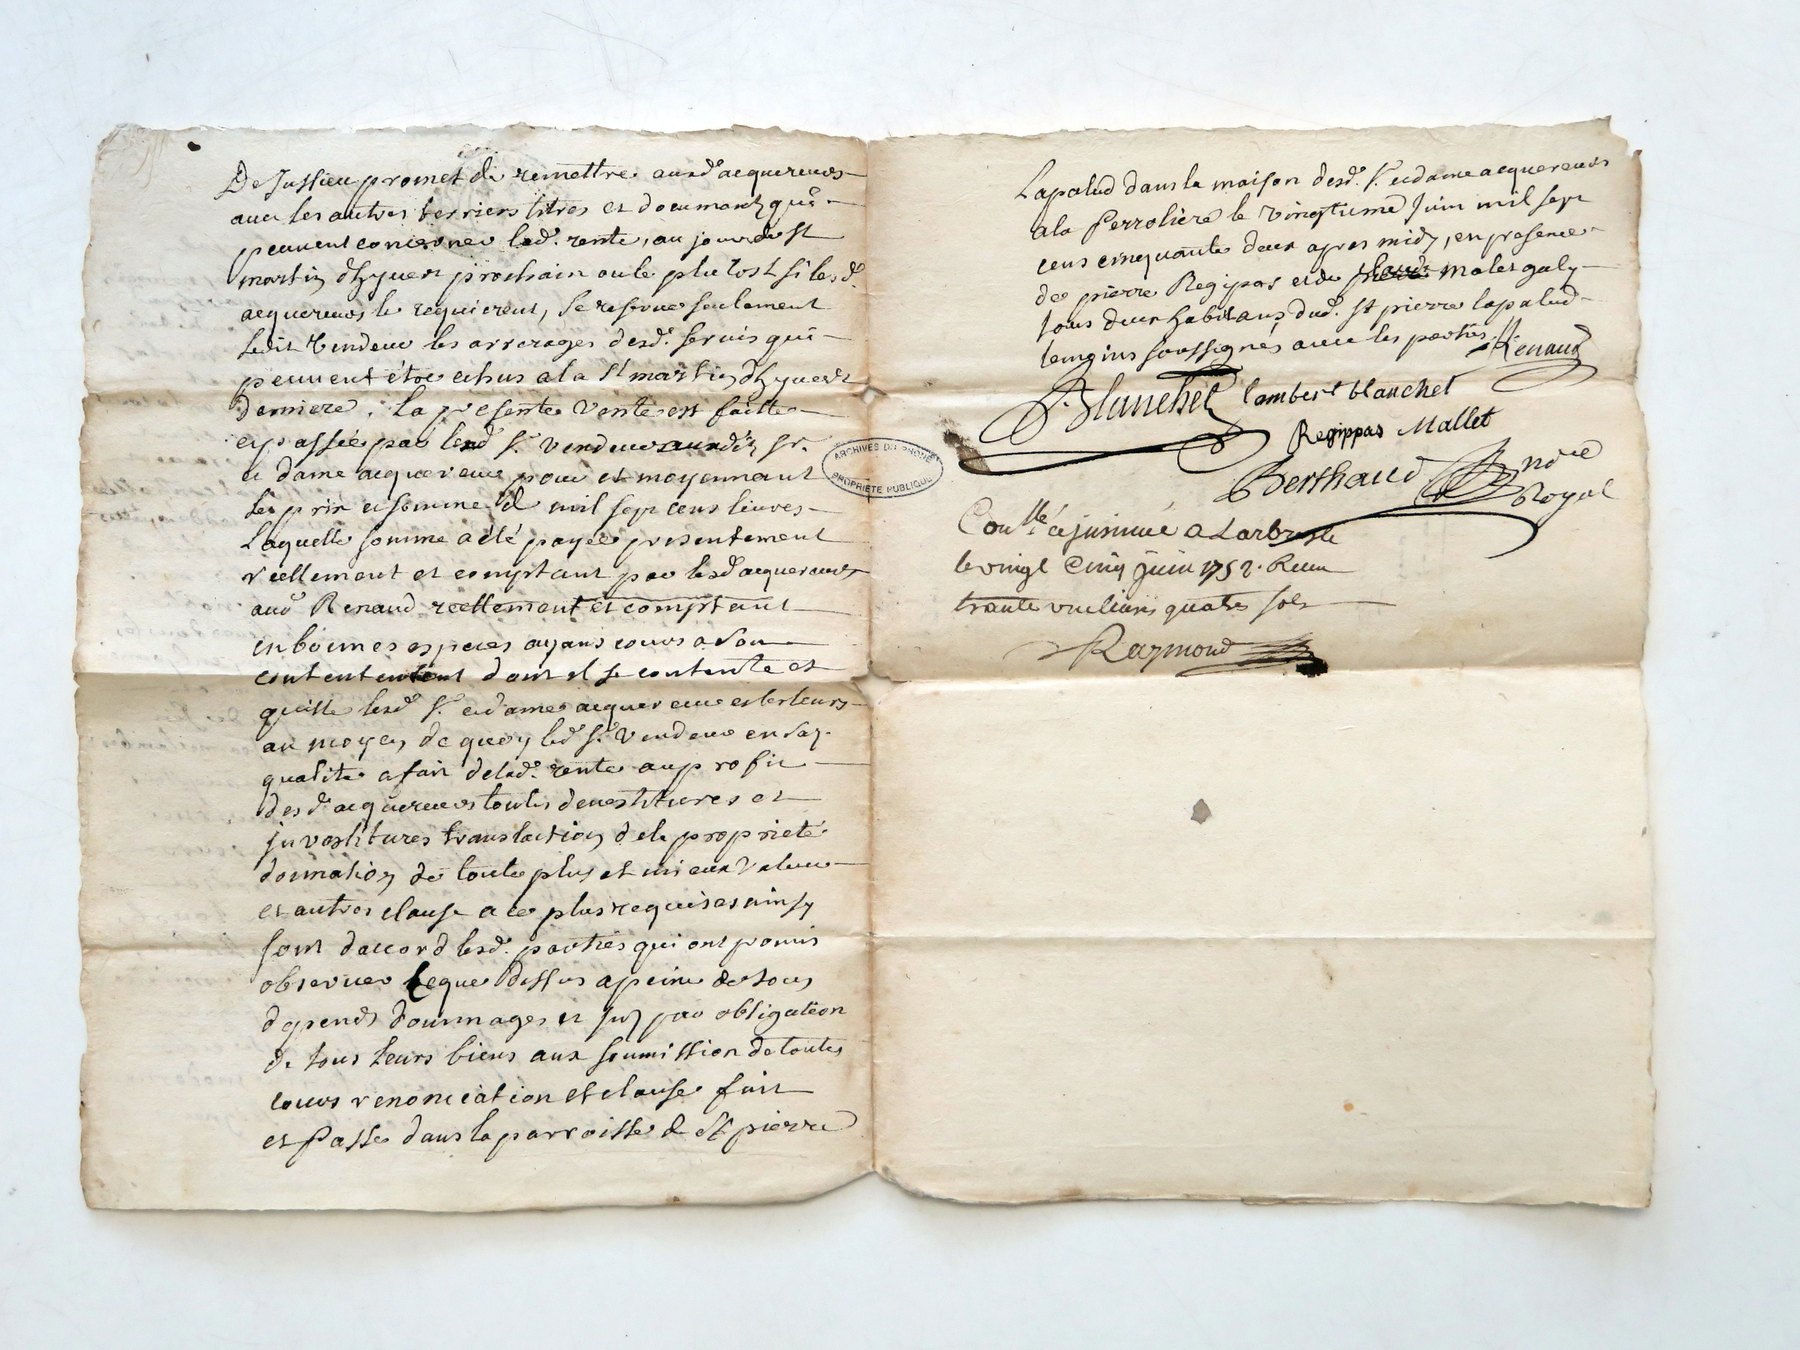 De Jussieu promet de remettre ausd. acquereurs
avec les autres terriers titres et documents qui
peuvent concerner lad. rente, au jour de st
martin dhyuer prochain ou le plutost si lesd.
acquereurs le requierent, se reserve seulement
ledit vendeur les arrerages desd. servis qui
peuuent être echus a la st martin dhyuer
derniere. La presente vente est faitte
et passée par led. Sr. vendeur ausdits Sr.
et dame acquereurs pour et moyennant
le prix et somme de mil sept cens liures
Laquelle somme a été payée presentement
reellement et comptant par lesd. acquereurs
aud. Renaud reellement et comptant
en bonnes especes ayans cours a son
contentement dont il se contente et
quitte lesd. Sr. et dame acquereurs et les leurs
au moyen de quoy led. Sr. vendeur en sa
qualité a fait de lad. rente au profit
desd. acquereurs toutes deuestitures et
juvestitures translation de la proprieté
donnation de toute plus et mieux value
et autres clause a ce plus requises ainsy
sont daccord lesd. parties qui ont promis
observer ce que dessus a peine de tous
depends dommages et par obligation
de tous leurs biens aux soumission de toutes
cours renonciation et clause fait
et Passé dans la parroisse de St pierre
Lapalud dans la maison desd. Sr. et dame acquereurs
a la Perroliere le vingtieme Juin mil sept
cens cinquante deux apres midy, en presence
de pierre Regipas et de molet
tous deux habitans dud. St pierre lapalud
temoins soussignés avec les parties. Renaud
Blanchet lambert blanchet
Regippas Mallet
Berthaud nore
Royal
ARCHIVES DU RHÔNE
PROPRIÉTÉ PUBLIQUE
Conllé et jnsinué a Larbresle
le vingt Cinq juin 1752. Recu
trante vnliures quatre sols
Raymond